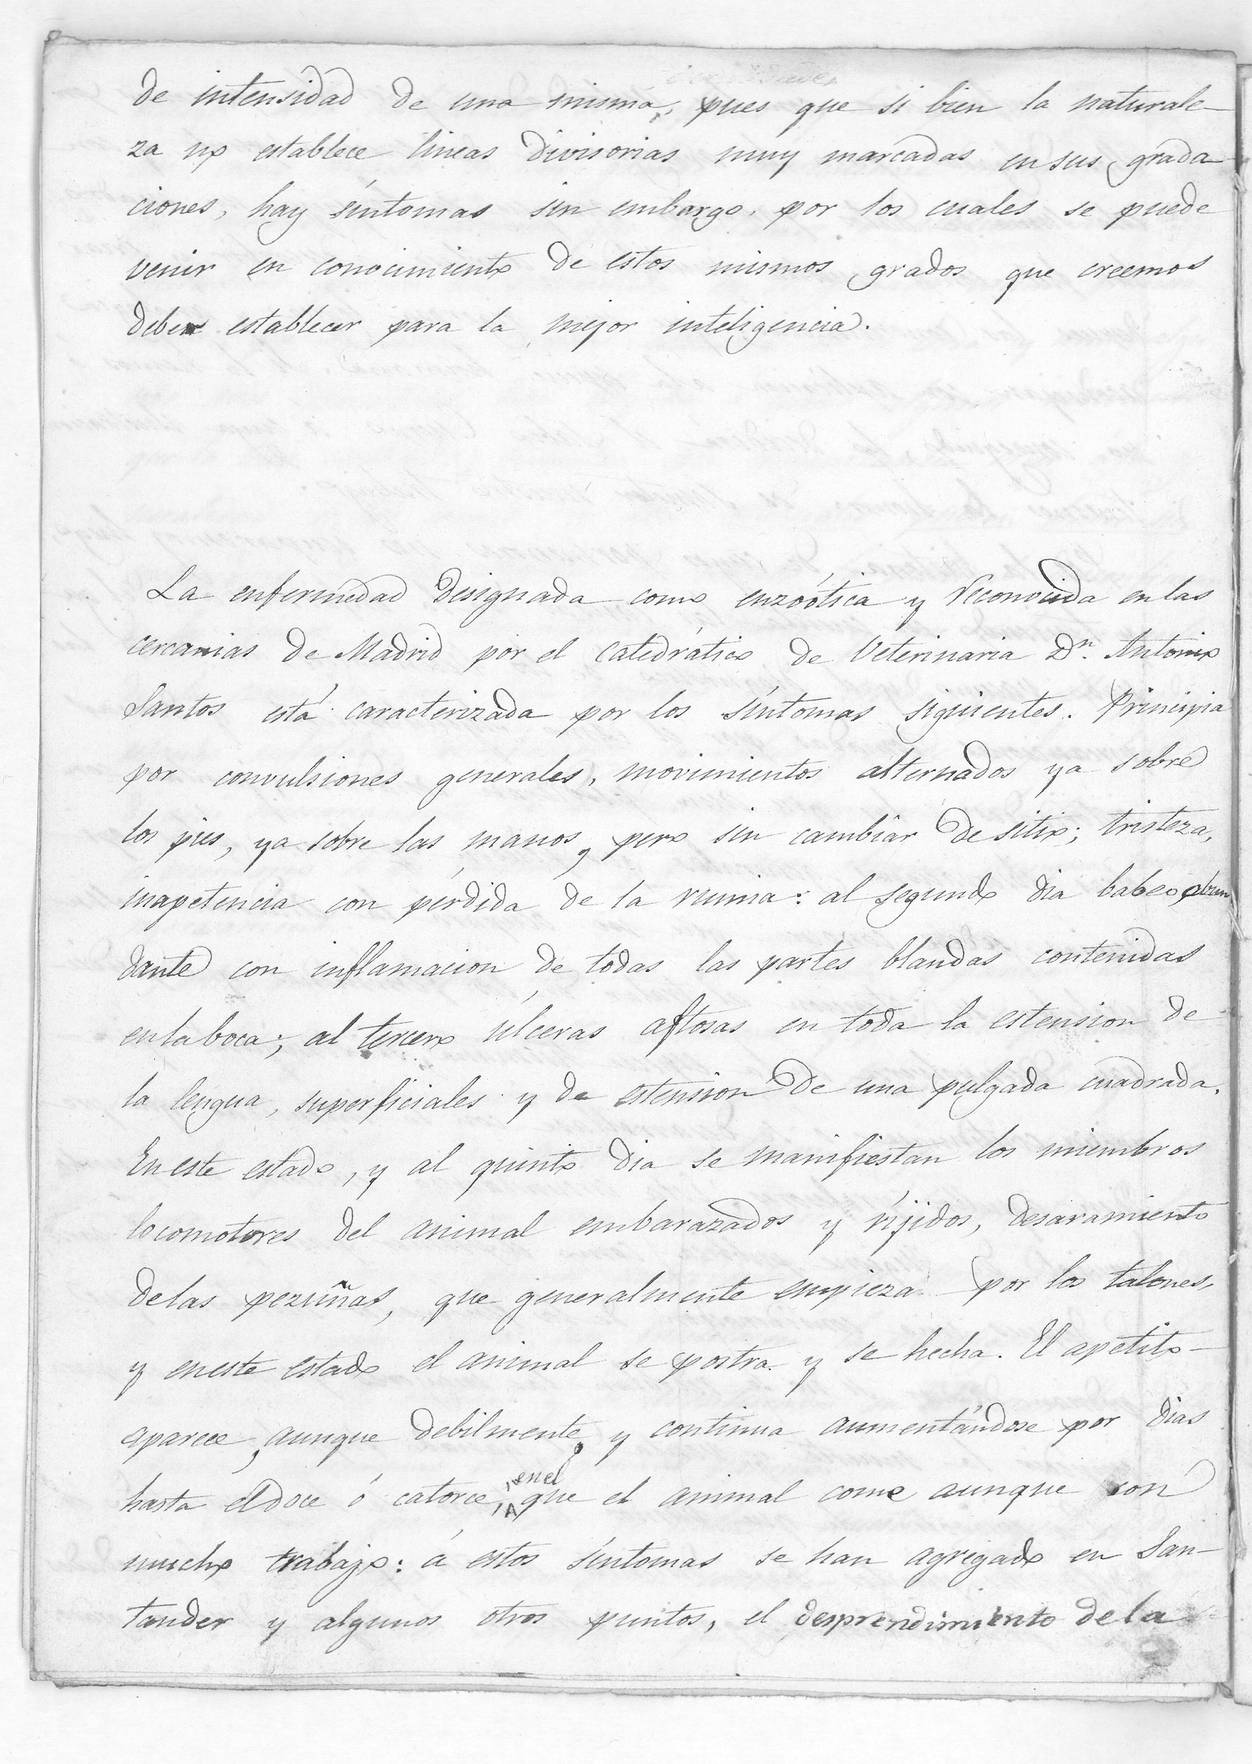 de intensidad de una misma, pues que si bien la naturale-
za no establece lineas divisorias muy marcadas en sus grada-
ciones, hay síntomas sin embargo, por los cuales se puede
venir en conocimiento de estos mismos grados que creemos
deber establecer para la mejor inteligencia.
La enfermedad designada como enzoótica y reconocida en las
cercanias de Madrid por el catedrático de Veterinaria Dn. Antonio
Santos está caracterizada por los síntomas siguientes. Principia
por convulsiones generales, movimientos alternados ya sobre
los pies, ya sobre las manos, pero sin cambiar de sitio; tristeza,
inapetencia con pérdida de la rumia: al segundo dia babeo abun
dante con inflamacion de todas las partes blandas contenidas
en la boca; al tercero úlceras aftosas en toda la estension de
la lengua, superficiales y de estension de una pulgada cuadrada.
En este estado, y al quinto dia se manifiestan los miembros
locomotores del animal embarazados y ríjidos, desaramiento
de las pezuñas, que generalmente empieza por los talones,
y en este estado el animal se postra y se hecha. El apetito
aparece, aunque debilmente, y continua aumentándose por dias
hasta el doce ó catorce, en el que el animal come aunque con
mucho trabajo: á estos síntomas se han agregado en San-
tander y algunos otros puntos, el desprendimiento de la